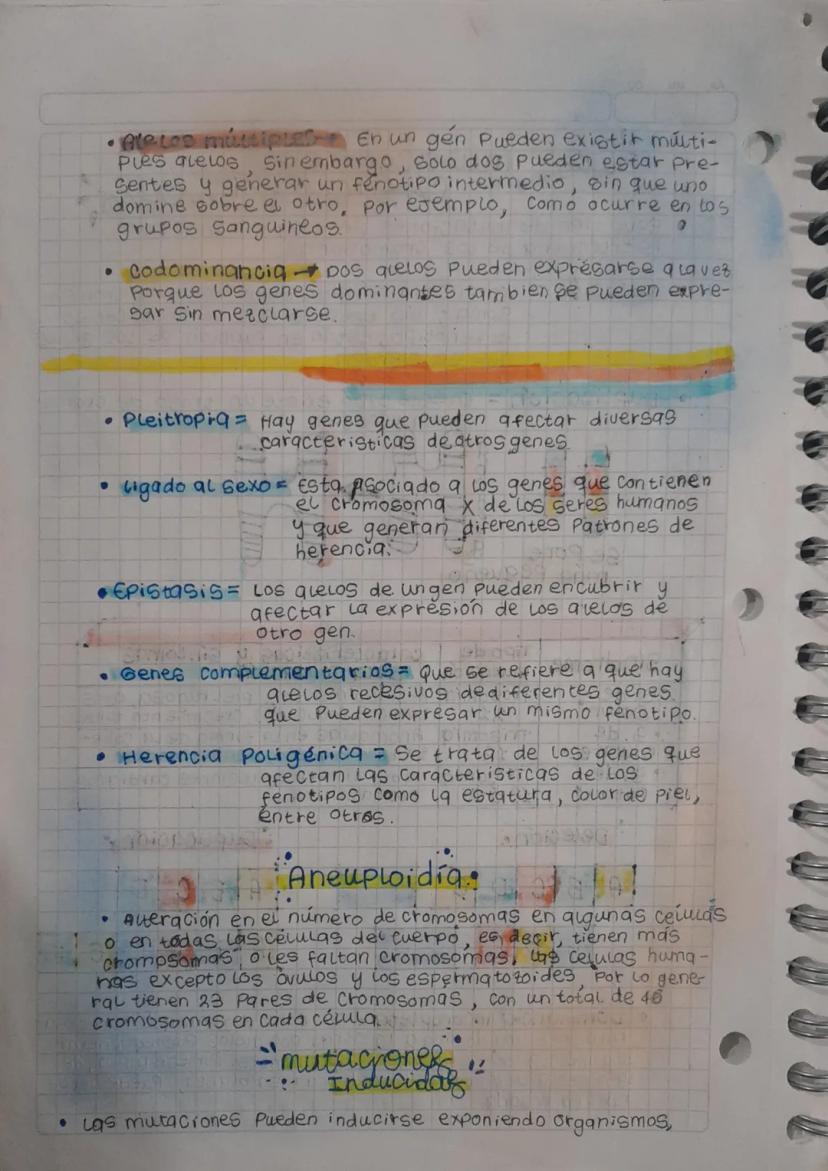 • Alelos múltiples → En un gén pueden existir múlti-
ples alelos, sin embargo, solo dos pueden estar pre-
sentes y generar un fenotipo intermedio, sin que uno
domine sobre el otro, por ejemplo, como ocurre en los
grupos sanguineos.
• codominancia → Dos alelos pueden expresarse a la vez
porque los genes dominantes tambien se pueden expre-
sar sin mezclarse.
• Pleitropia = Hay genes que pueden afectar diversas
caracteristicas de otros genes
• Ligado al sexo = Esta Asociado a los genes que contienen
el cromosoma X de los seres humanos
y que generan diferentes Patrones de
herencia.
• Epistasis = Los alelos de un gen pueden encubrir y
afectar la expresión de los alelos de
otro gen.
• Genes complementarios = Que se refiere a que hay
alelos recesivos de diferentes genes
que pueden expresar un mismo fenotipo.
• Herencia Poligénica = Se trata de los genes que
afectan las caracteristicas de los
fenotipos como la estatura, color de piel,
entre otros.
Aneuploidía
• Alteración en el número de cromosomas en algunas celulas
o en todas las células del cuerpo, es decir, tienen más
crompsomas o les faltan cromosomas, las celulas huma-
nas excepto los óvulos y los espermatozoides, Por lo gene-
ral tienen 23 pares de cromosomas, con un total de 46
cromosomas en cada célula.
mutaciones
Inducidas
• Las mutaciones pueden inducirse exponiendo organismos,